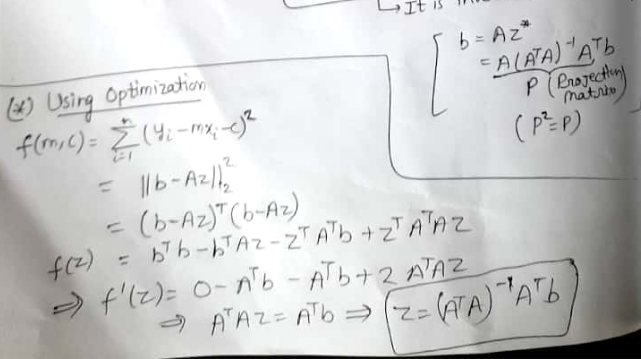 ↳ It is
[ b = Az*
= A(AᵀA)⁻¹Aᵀb
P (Projection matrix)
(P²=P)
(*) Using Optimization
f(m,c) = Σⁿᵢ₌₁ (yᵢ - mxᵢ - c)²
= ||b - Az||₂²
= (b - Az)ᵀ(b - Az)
f(z) = bᵀb - bᵀAz - zᵀAᵀb + zᵀAᵀAz
⇒ f'(z) = 0 - Aᵀb - Aᵀb + 2AᵀAz
⇒ AᵀAz = Aᵀb ⇒ z = (AᵀA)⁻¹Aᵀb